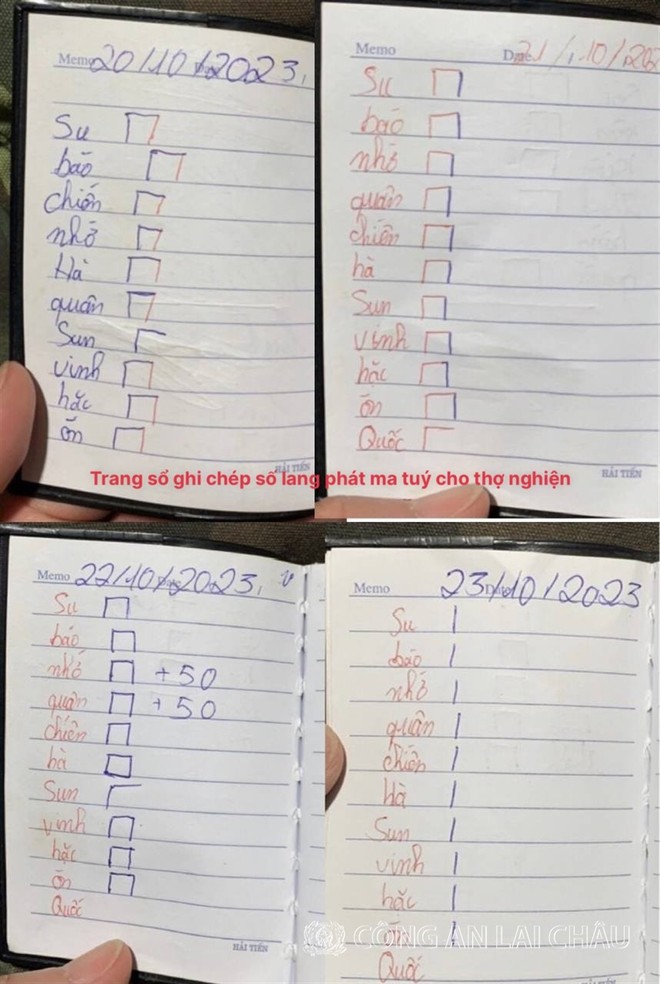 Memo 20/10/2023,
Su
bảo
chiến
nhớ
Hà
quân
Sun
vinh
hắc
ổn
HẢI TIẾN
Memo Date 21/10/202
Su
bảo
nhớ
quân
chiến
hà
Sun
vinh
hắc
ổn
Quốc
HẢI TIẾN
Trang sổ ghi chép số lang phát ma tuý cho thợ nghiện
Memo 22/10/2023,
Su
bảo
nhớ +50
quân +50
chiến
hà
Sun
vinh
hắc
ổn
Quốc
HẢI TIẾN
Memo 23/10/2023
Su
bảo
nhớ
quân
chiến
Hà
Sun
vinh
hắc
ổn
Quốc
CÔNG AN LAI CHÂU